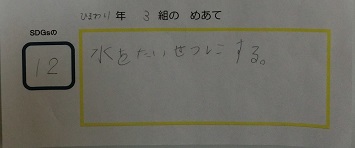 ひまわり年 3 組の めあて
SDGsの
12
水をたいせつにする。